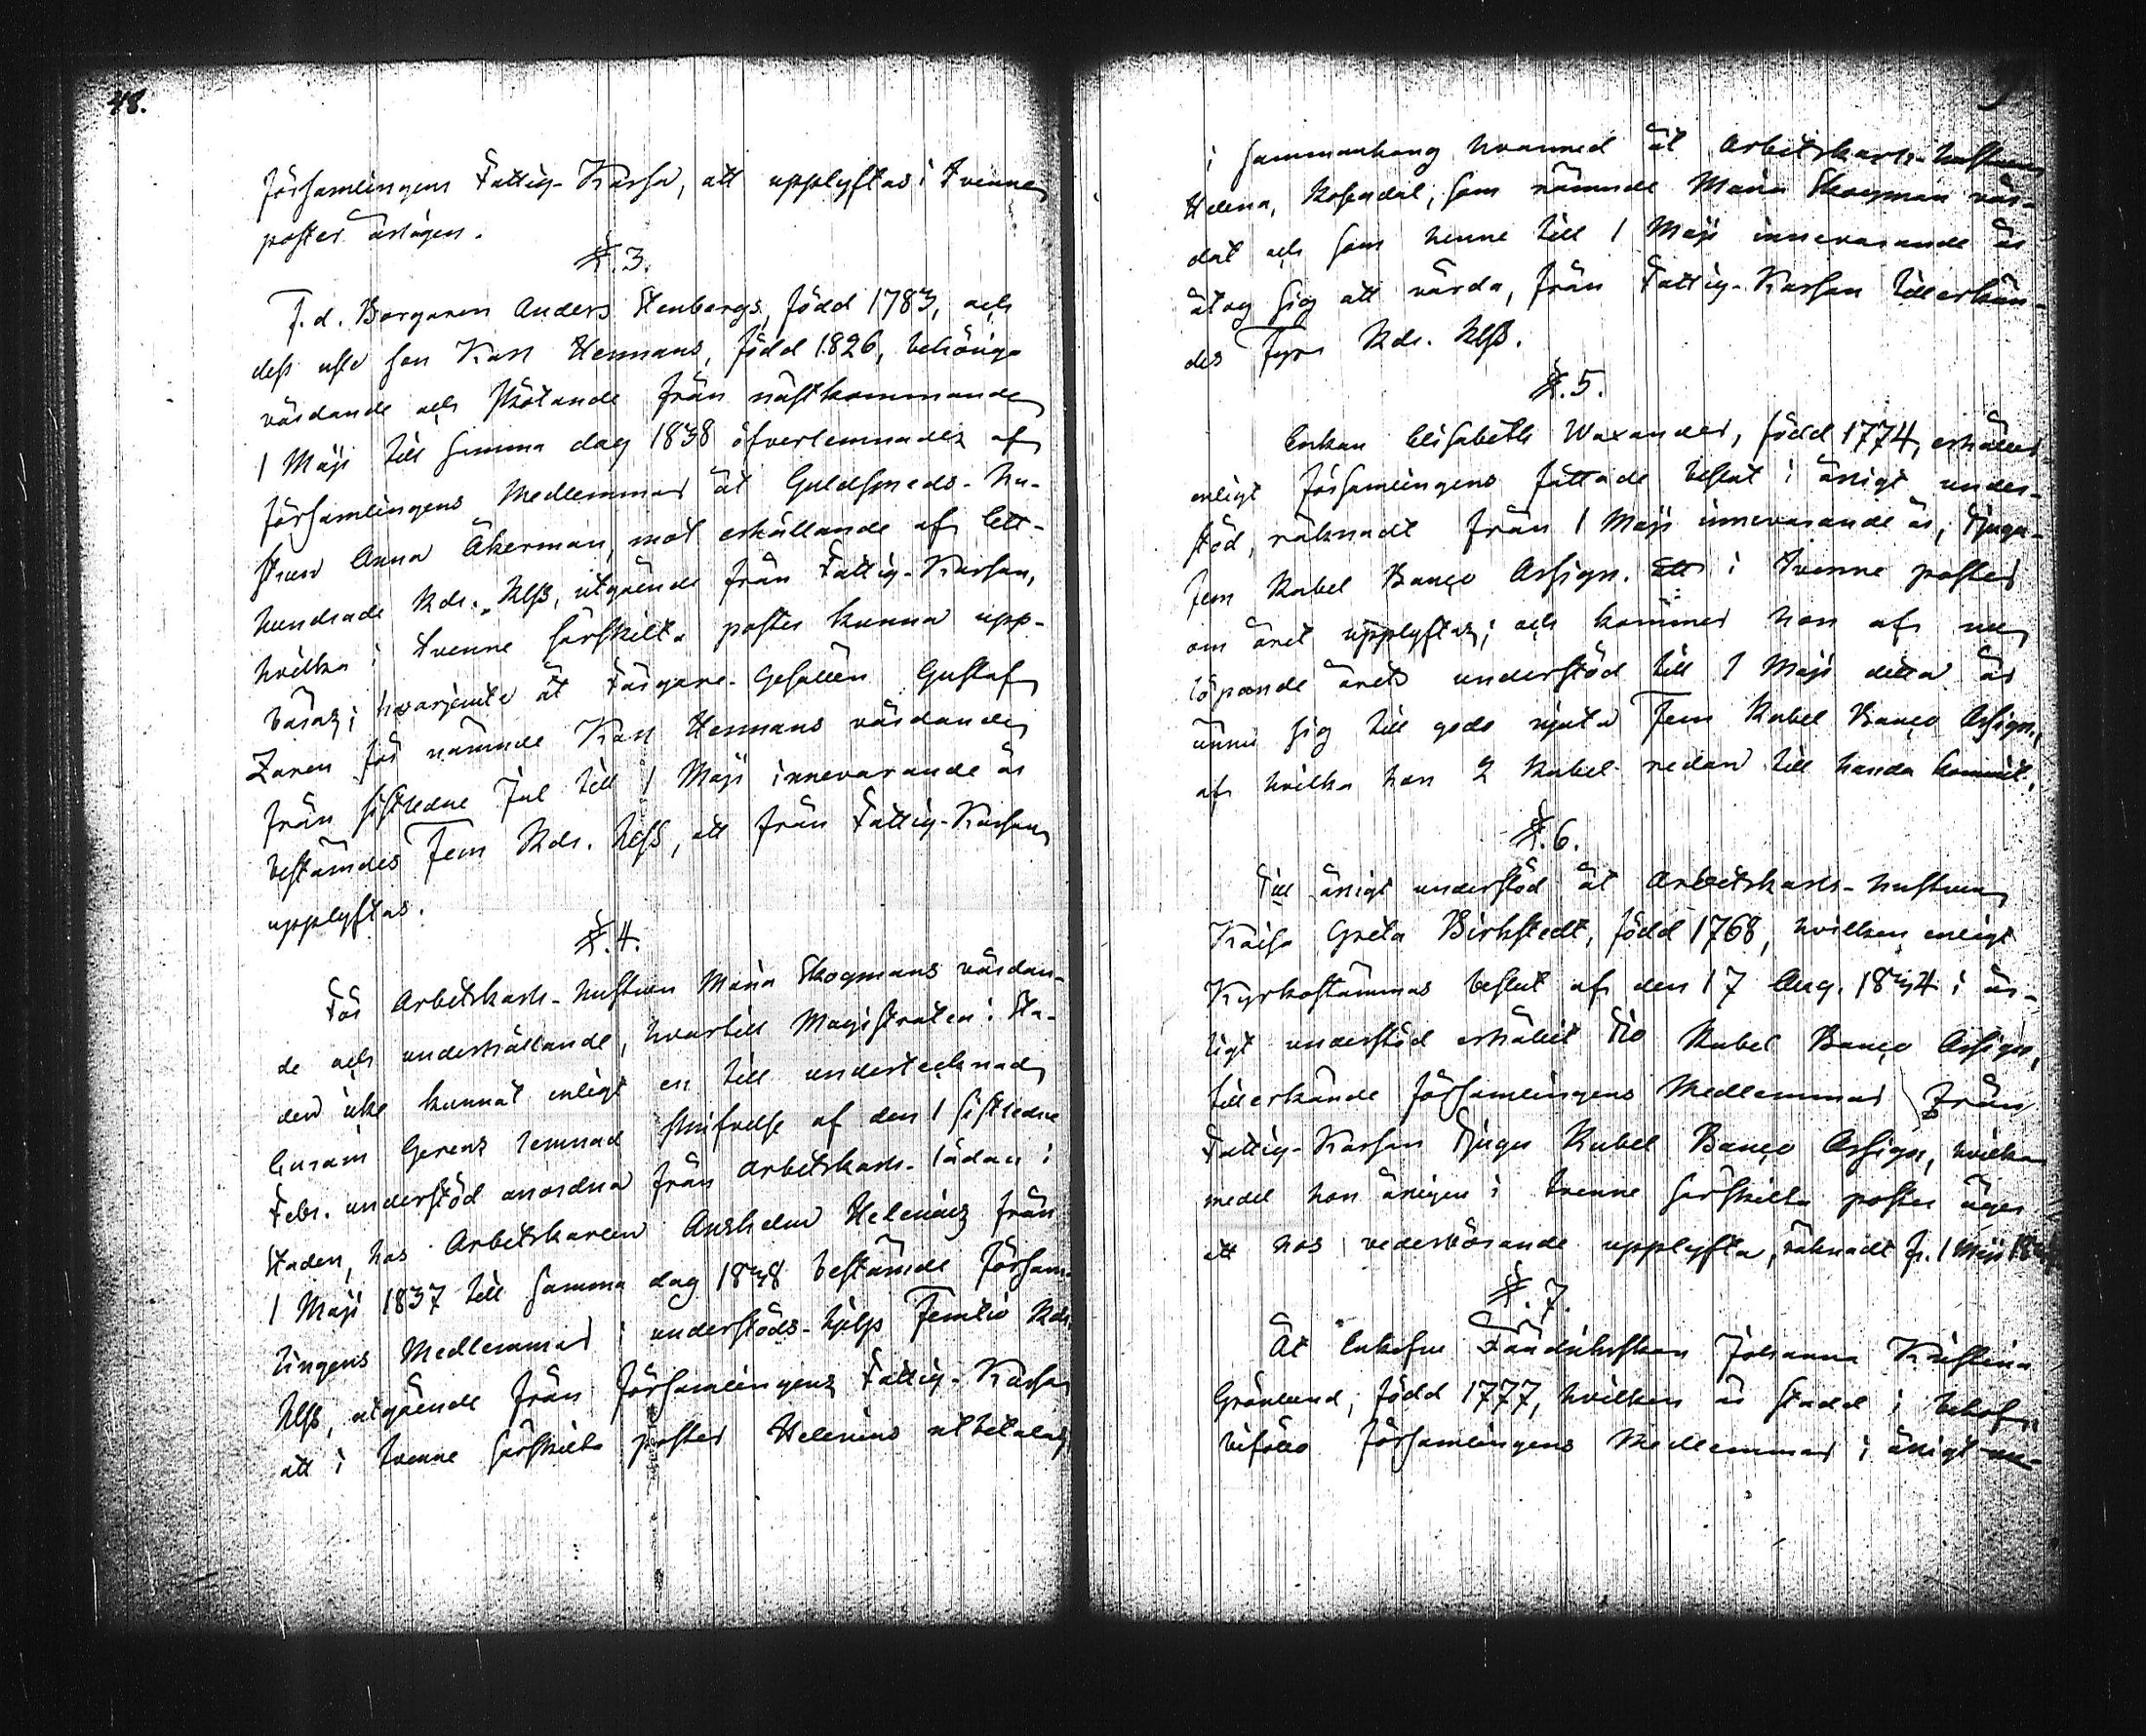 48.
församlingens Fattig-Kassa, att upplyftas i tvenne
poster årligen.
§.3.
F.d. Borgaren Anders Stenbergs, född 1783, och
dess usle son Karl Hermans, född 1826, behöriga
vårdande och skötande från nästkommande
1 Maji till samma dag 1838 öfverlemnades af
församlingens Medlemmar åt Guldsmeds-hu-
strun Anna Åkerman, mot erhållande af Ett-
hundrade Rdr. Rgß, utgående från Fattig-Kassan,
hvilka i tvenne särskilta poster kunna upp-
bäras; hvarjemte åt Färgare-Gesällen Gustaf
Zaren för nämnde Karl Hermans vårdande
från sistledne Jul till 1 Maji innevarande år
bestämdes Fem Rdr. Rgß, att från Fattig-Kassan
upplyftas.
§.4.
För Arbetskarls-hustrun Maria Skogmans vårdan-
de och underhållande, hvartill Magistraten i Sta-
den icke kunnat enligt en till undertecknad
lemnad skrifvelse af den 1 sistledne
Febr. understöd anordna från Arbetskarls-lådan i
Staden, hos Arbetskarlen Anshelm Helenius från
1 Maji 1837 till samma dag 1838 bestämde försam-
lingens Medlemmar i understöds-hjelp Femtio Rdr
Rgß, utgående från församlingens Fattig-Kassa
att i tvenne särskilta poster Helenius utbetalas,
i sammanhang hvarmed åt Arbetskarls-hustrun
Helena Rosendal, som nämnde Maria Skogman vår-
dat och som henne till 1 Maji innevarande år
åtog sig att vårda, från Fattig-Kassan tillerkän-
des Fyra Rdr. Rgß.
§.5.
Enkan Elisabeth Waxander, född 1774, erhåller
enligt församlingens fattade beslut i årligt under-
stöd, räknadt från 1 Maji innevarande år, Tjugu-
fem Rubel Banco Assign. att i tvenne poster
om året upplyftas; och kommer hon af nu
löpande årets understöd till 1 Maji detta år
ännu sig till godo njuta Fem Rubel Banco Assign.,
af hvilka hon 2 Rubel redan till handa kommit.
§.6.
Till årligt understöd åt Arbetskarls-hustrun
Kaisa Greta Birkstedt, född 1768, hvilken enligt
Kyrkostämmas beslut af den 17 Aug. 1834 i år-
ligt understöd erhållit Tio Rubel Banco Assign,
tillerkände församlingens Medlemmar från
Fattig-Kassan Tjugu Rubel Banco Assign, hvilka
medel hon årligen i tvenne särskilta poster äger
att hos vederbörande upplyfta, räknadt fr. 1 Maji
§.7.
Åt Enkefru Johanna Kristina
Grönlund, född 1777, hvilken är stadd i behof,
biföllo församlingens Medlemmar i årligt un-